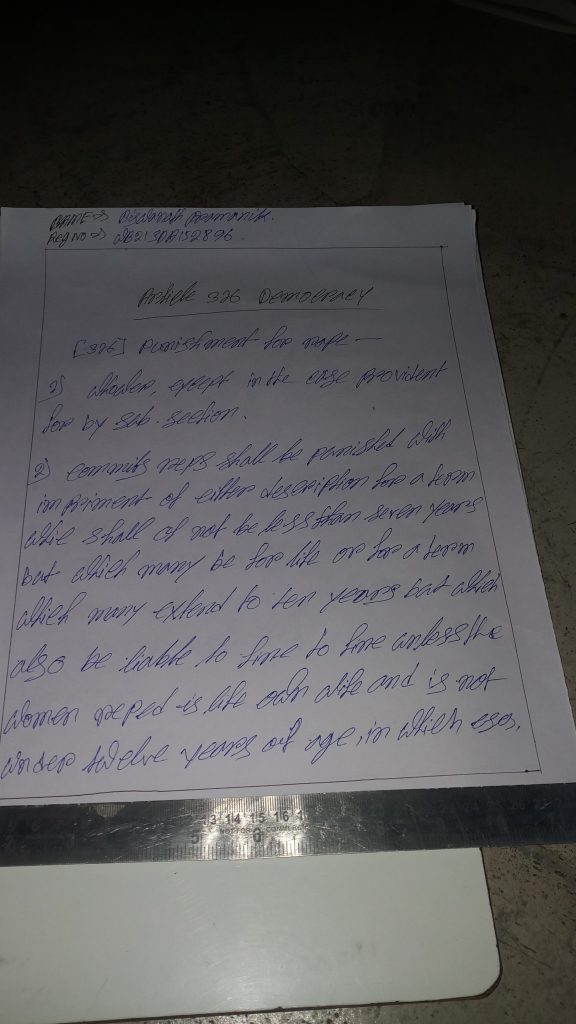 NAME => Biswanath Pramanik.
Reg No =>
Article 376 Democracy
[376] Punishment for rape —
1) whoever, except in the case provident
for by sub. section.
2) commits reps shall be punished with
impriment of either description for a term
whie shall of not be less than seven years
but which many be for life or for a term
which many extend to ten years but which
also be liable to fine to fine unless the
women reped is life own wife and is not
under twelve years of age, in which
13 14 15 16 1
5 6